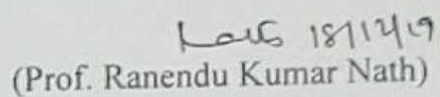 18/12/19
(Prof. Ranendu Kumar Nath)